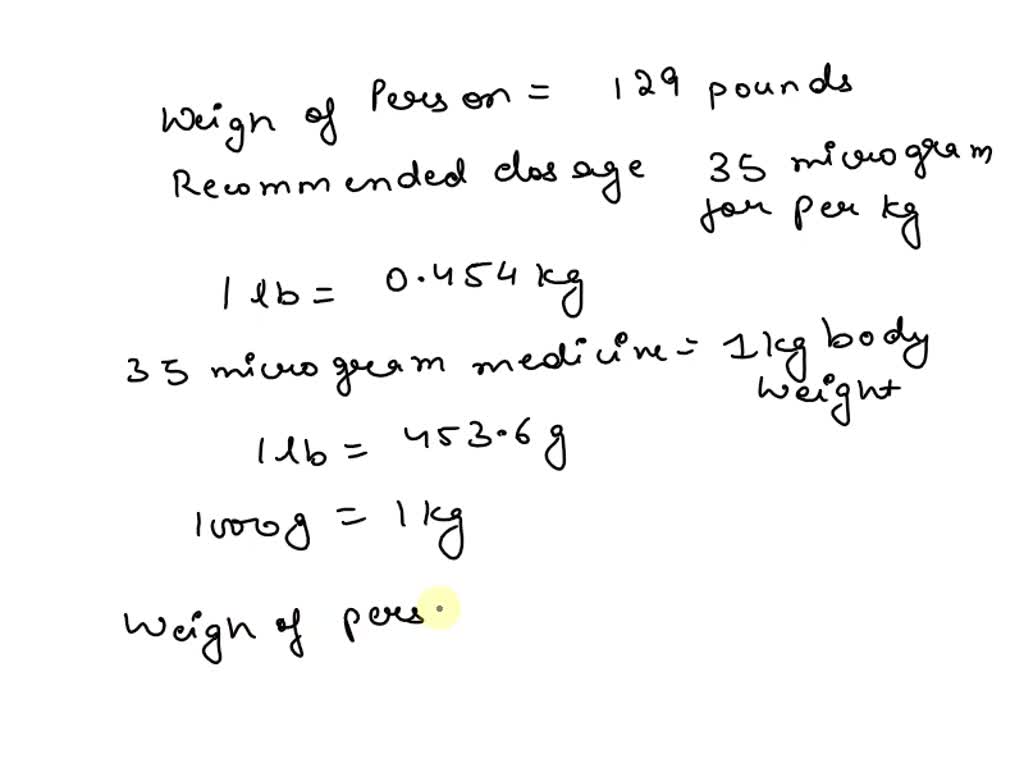 Weign of Person = 129 pounds
Recommended dosage 35 microgram
for per kg
1 lb = 0.454 kg
35 microgram medicine = 1 kg body
weight
1 lb = 453.6 g
1000 g = 1 kg
Weign of pers